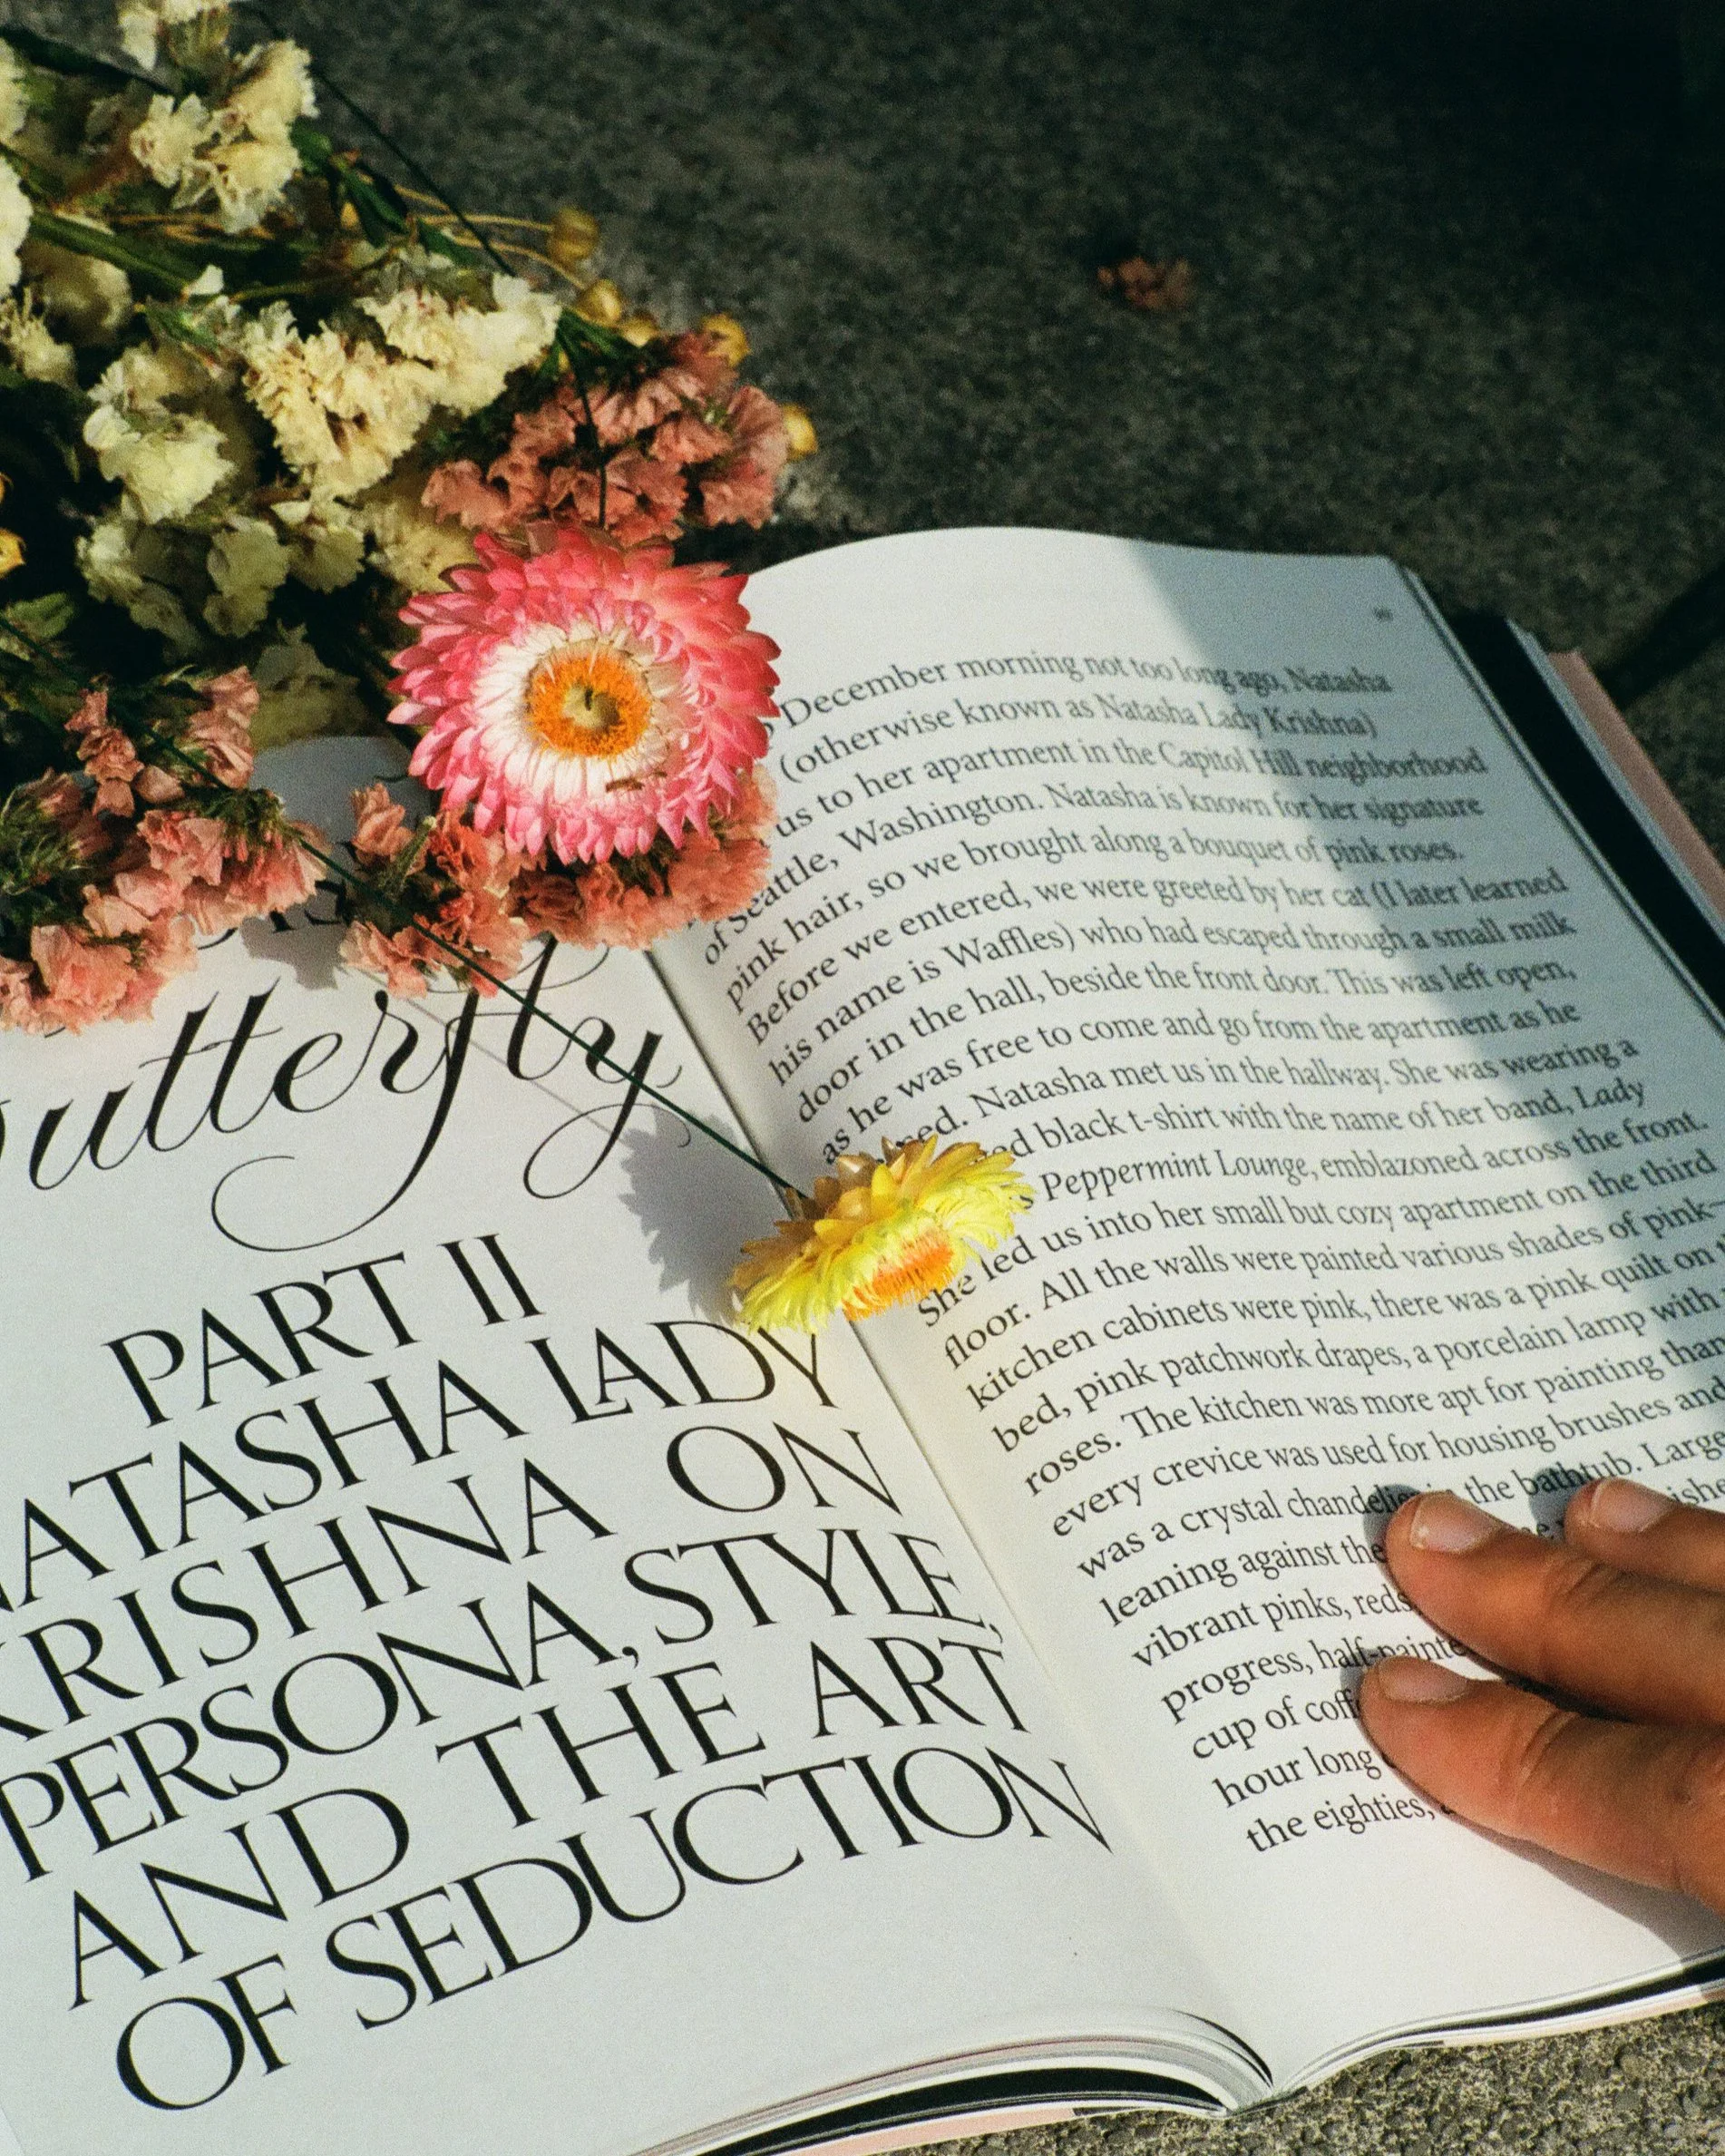 utterfly
PART II
NATASHA LADY
KRISHNA ON
PERSONA, STYLE,
AND THE ART
OF SEDUCTION
December morning not too long ago, Natasha
(otherwise known as Natasha Lady Krishna)
us to her apartment in the Capitol Hill neighborhood
of Seattle, Washington. Natasha is known for her signature
pink hair, so we brought along a bouquet of pink roses.
Before we entered, we were greeted by her cat (I later learned
his name is Waffles) who had escaped through a small milk
door in the hall, beside the front door. This was left open,
as he was free to come and go from the apartment as he
Natasha met us in the hallway. She was wearing a
black t-shirt with the name of her band, Lady
Peppermint Lounge, emblazoned across the front.
She led us into her small but cozy apartment on the third
floor. All the walls were painted various shades of pink—
kitchen cabinets were pink, there was a pink quilt on
bed, pink patchwork drapes, a porcelain lamp with
roses. The kitchen was more apt for painting than
every crevice was used for housing brushes and
was a crystal chandelier in the bathtub. Large
leaning against the
vibrant pinks, reds
progress, half-painte
cup of coff
hour long
the eighties,